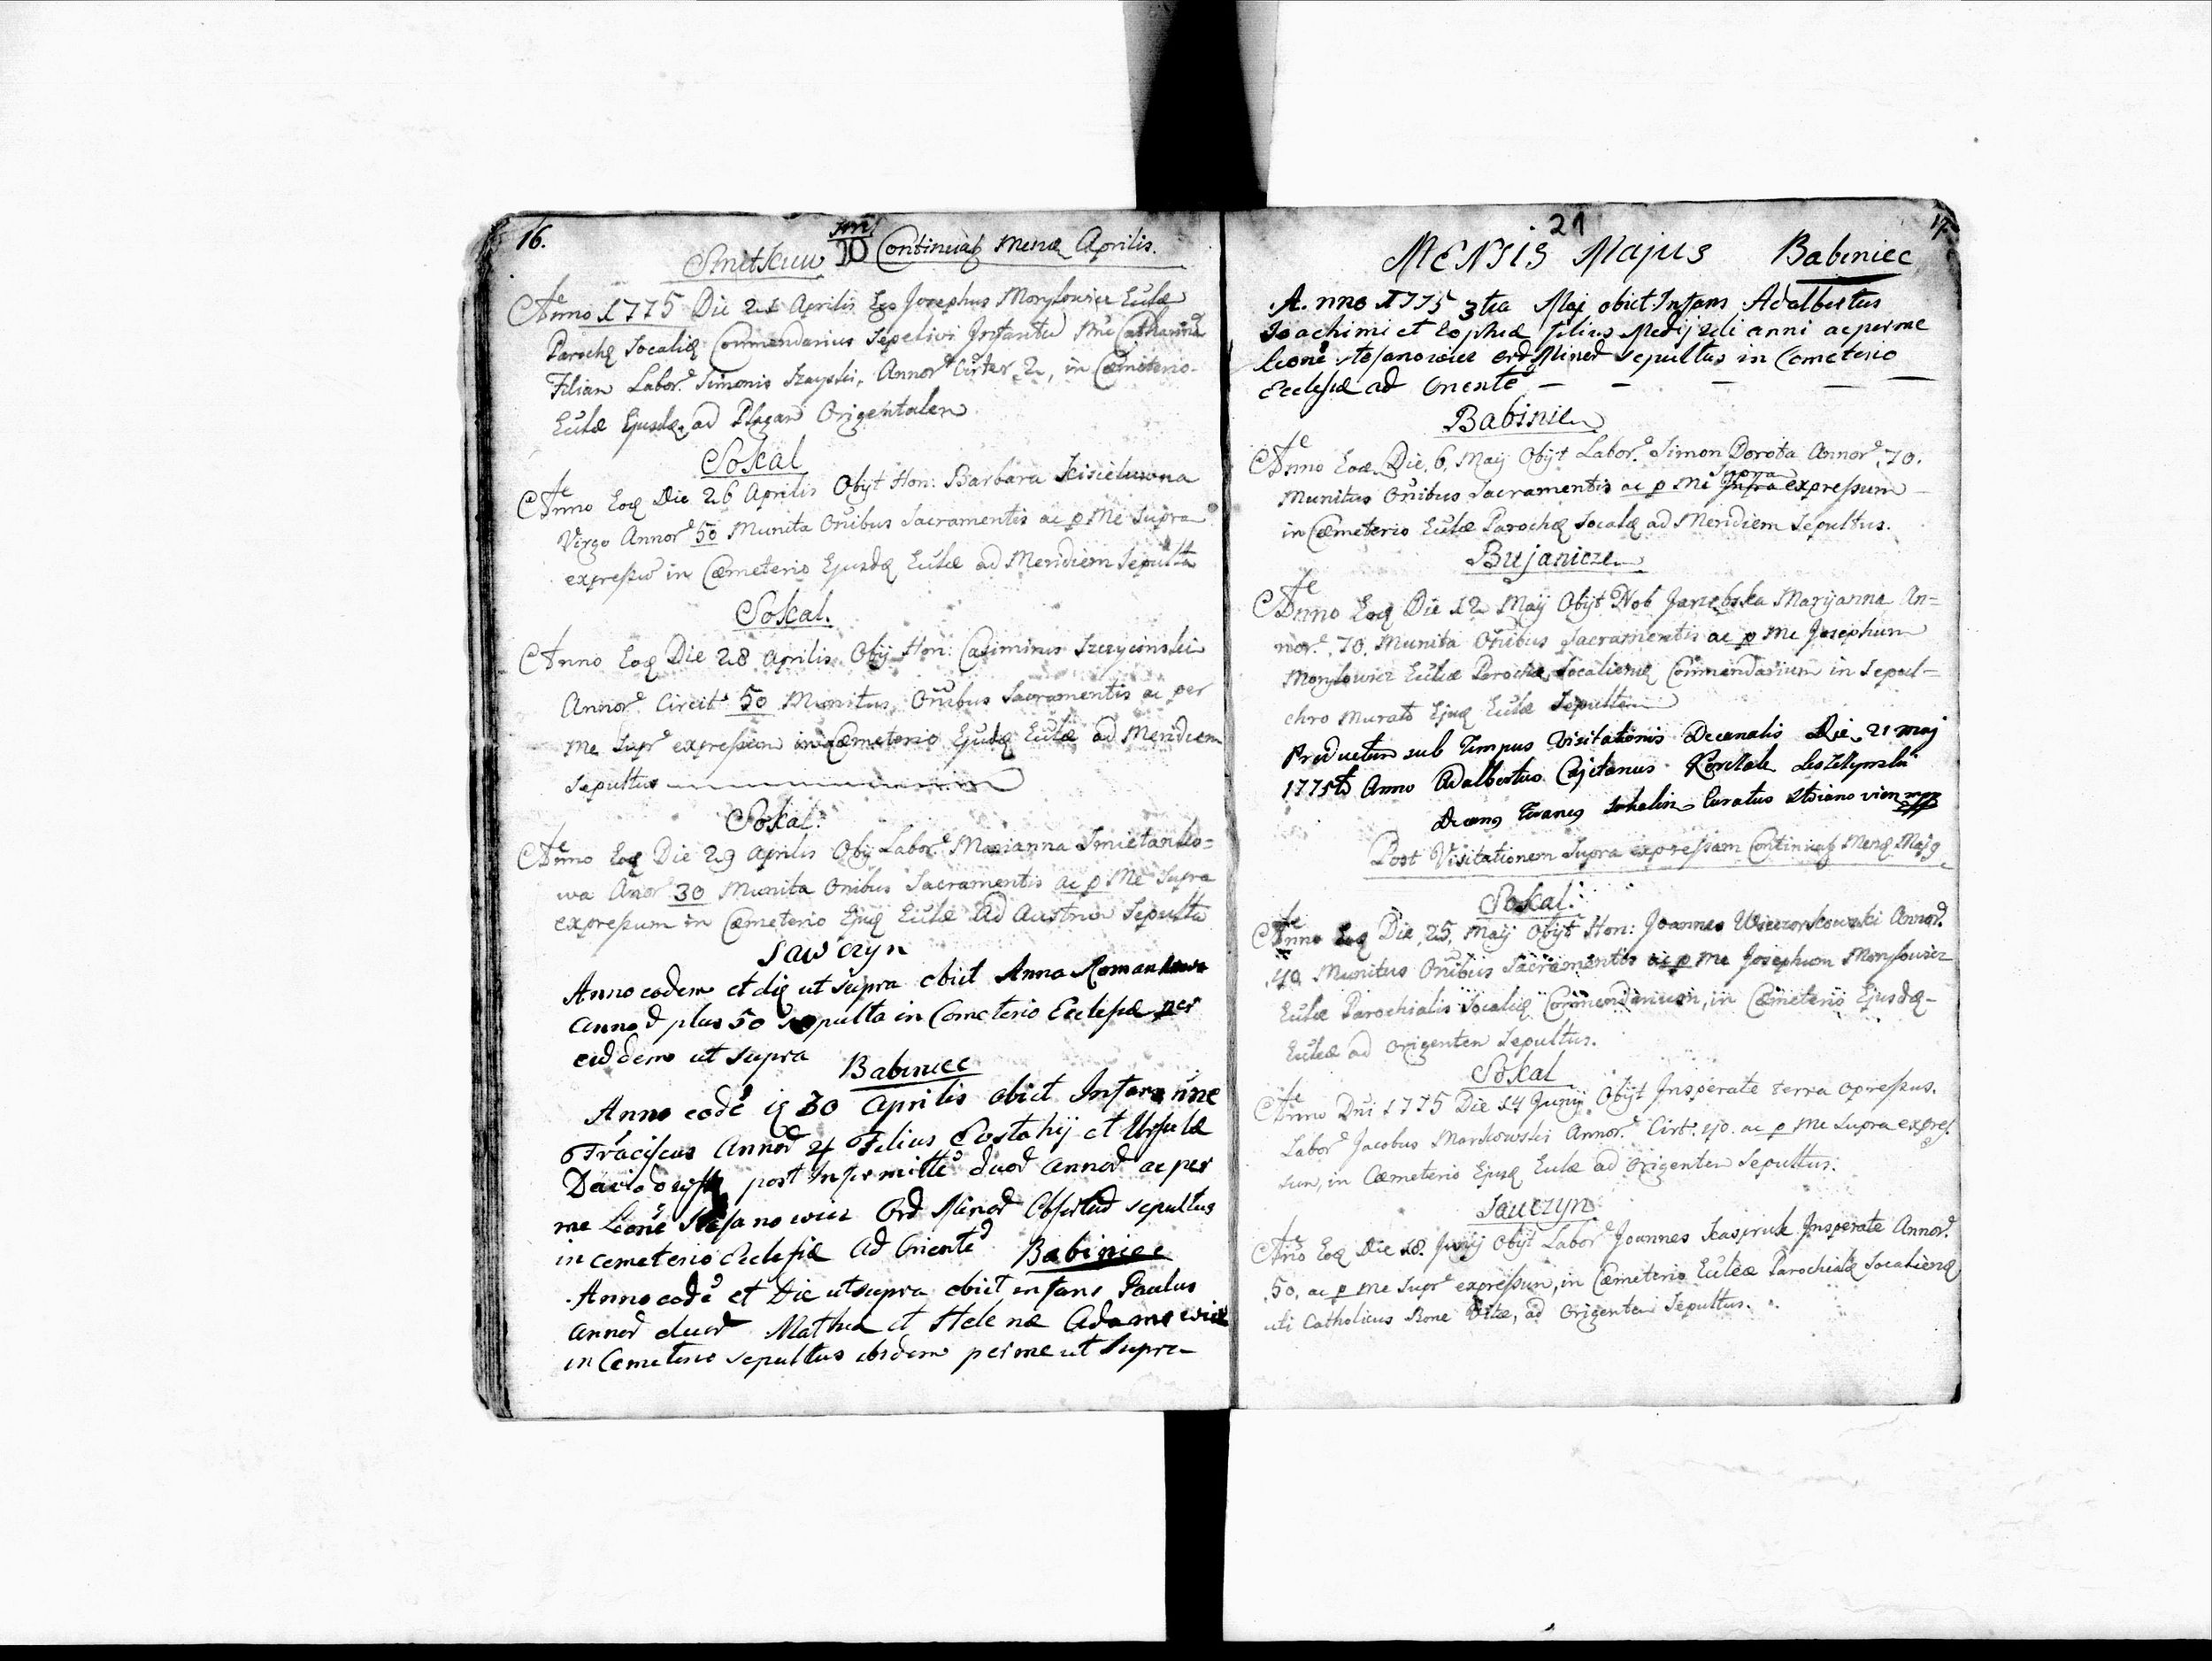 16.
Continuaõ Mensæ Aprilis.
Anno 1775 Die 21 Aprilis Ego Josephus Morylowicz Eulæ
Parochæ Socaliæ Commendarius Sepelivi Infantem Catharina
Filian Labor. Simonis Annor Cirter 2, in Cæmiterio
Eulæ Ejusdæ ad Plagan Origentalen
Sokal
Anno Eoq Die 26 Aprilis Obyt Hon: Barbara
Virgo Annor 50 Munita Onibus Sacramentis ac p Me Supra
expreſsu in Cæmeterio Ejusdq Eulæ ad Meridiem Sepulta
Sokal.
Anno Eoq Die 28 Aprilis Obij Hon: Casimirus
Annor Circit 50 Munitus Onibus Sacramentis ac per
Me Supr expreſsum in Cæmeterio Ejusdq Eulæ ad Meridiem
Sepultus
Sokal:
Anno Eoq Die 29 Aprilis Obij Labor Marianna Smietanko=
wa Anor 30 Munita Onibus Sacramentis ac p Me Supra
expreſsum in Cæmeterio Ejuq Eulæ Ad Austrum Sepulta
Sawczyn
Anno eodem et die ut supra obiit Anna
Annod plus 50 sepulta in Cometerio Ecclesiæ per
eiddem ut supra
Babiniec
Anno eode 30 Aprilis obiit Infans
Annod 4 Filius Eostahij et Ursulæ
post duod annod ac per
me Leone Stefanowicz Ord Minod sepultus
in cemeterio Ecclesiæ ad Oriente
Babiniec
Anno eode et Die ut supra obiit infans Paulus
annod duod Mathea et Helenæ
in Cemeterio sepultus ibidem per me ut supra
21
17.
MENSIS Majus Babiniec
A. nno 1775 3tia Maj obiit Infans Adalbertus
Joachimi et Zophiæ filius anni ac per me
Leone Stefanowicz ord Minod sepultus in Cemeterio
Ecclesiæ ad Oriente
Babiniec
Anno Eoq Die 6. Maij Obijt Labor. Simon Dorota Annor. 70.
Munitus Onibus Sacramentis ac p Me Supra expreſsum
in Cæmeterio Eulæ Parochq Socalq ad Meridiem Sepultus.
Bujanicze
Anno Eoq Die 12 Maij Obijt Nob Jarzebska Maryanna An=
nor. 70. Munita Onibus Sacramentis ac p Me Josephum
Morylowicz Eulæ Parochæ Socaliensq Commendarium in Sepul=
chro Murato Ejuq Eulæ
Productum sub tempus Visitationis Decanalis Die 21 Maj
1775to Anno Adalbertus Cajetanus
Curatus
Post Visitationem Supra expreſsam Continuaõ Mensq Majq
Sokal:
Anno Eoq Die 25, Maij Obijt Hon: Joannes Wieczorkowski Annod.
40. Munitus Onibus Sacramentis ac p Me Josephum Morylowicz
Eulæ Parochialis Socaliq Commendarium, in Cæmeterio Ejusdq
Eulæ ad Origenten Sepultus.
Sokal
Anno Dni 1775 Die 14 Junij Obijt Insperate terra opreſsus.
Labor Jacobus Markowski Annor. Cirt. 40. ac p Me Supra expreſ
sum, in Cæmeterio Ejusq Eulæ ad Origenten Sepultus.
Sawczyn
Ano Eoq Die 18. Junij Obijt Labor Joannes Kaspruk Insperate Annor.
50. ac p Me Supr expreſsum, in Cæmeterio Eulæ Parochialq Socaliensq
uti Catholicus Bone Vitæ, ad Origenten Sepultus.